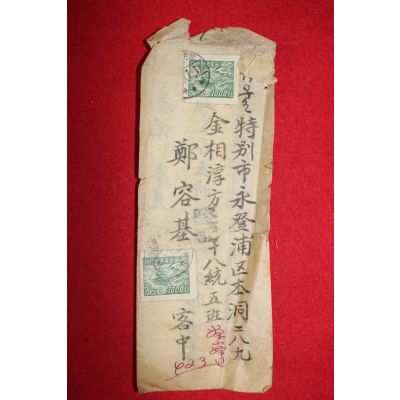 서울特別市永登浦区本洞二八九
金相淳方
八統五班
鄭容基 客中
1000
1000
423